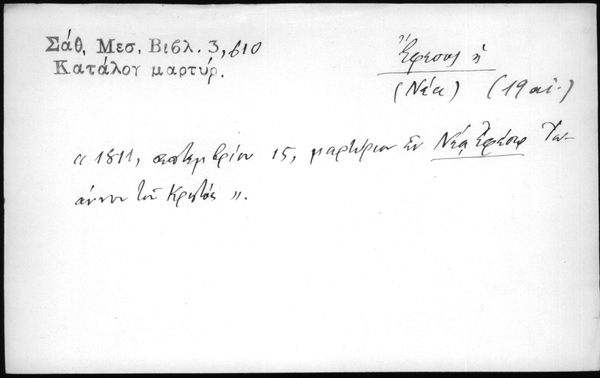 Σάθ, Μεσ. Βιβλ. 3, 610
Κατάλογ μαρτύρ.
Ἔφεσος ἡ
(Νέα) (19 αἰ.)
"1811, σεπτεμβρίου 15, μαρτύριον ἐν Νέᾳ Ἐφέσῳ Ἰω-
άννου τοῦ Κρητός".